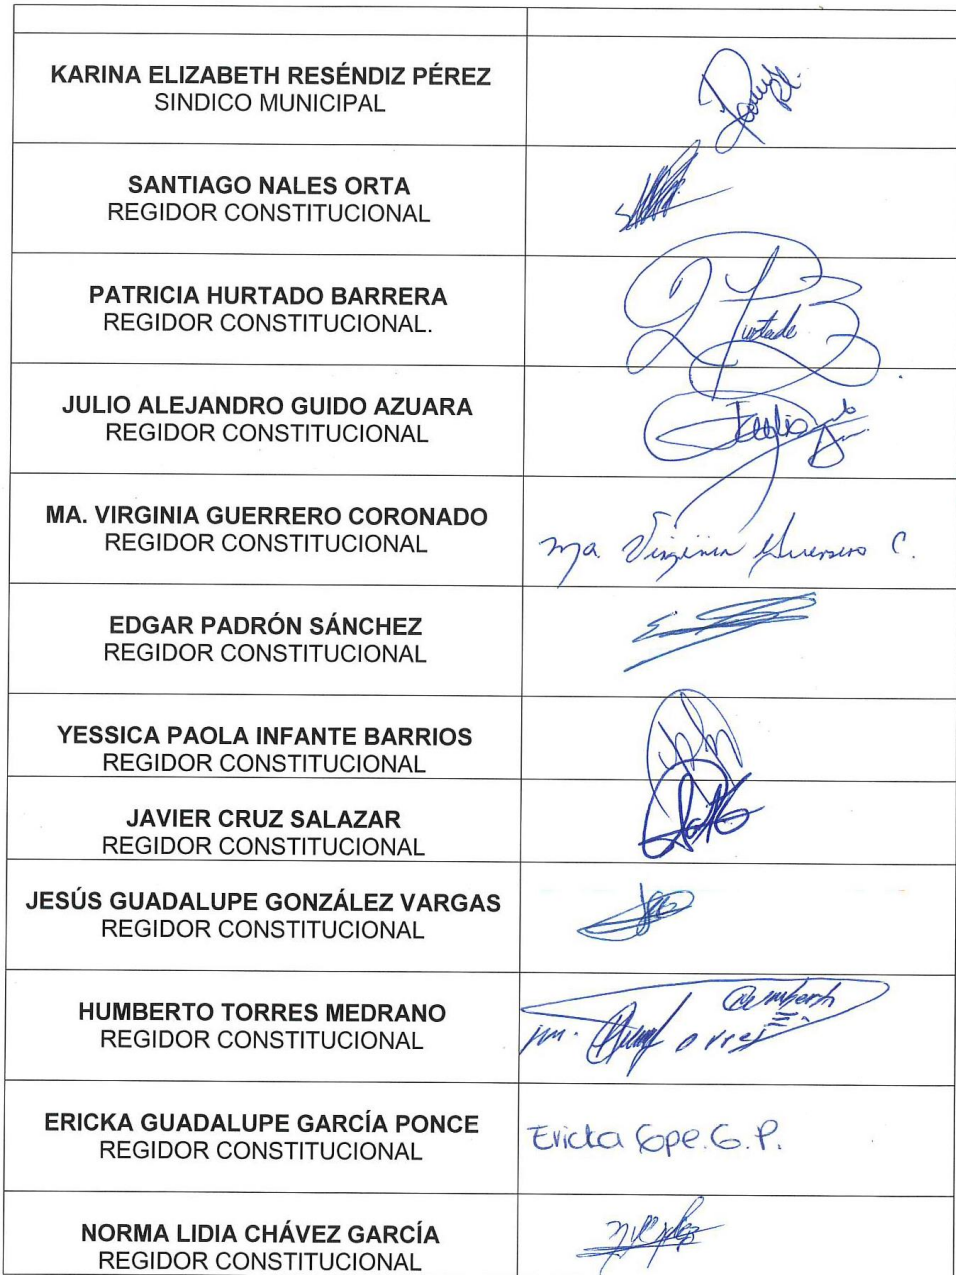 KARINA ELIZABETH RESÉNDIZ PÉREZ
SINDICO MUNICIPAL
SANTIAGO NALES ORTA
REGIDOR CONSTITUCIONAL
PATRICIA HURTADO BARRERA
REGIDOR CONSTITUCIONAL.
JULIO ALEJANDRO GUIDO AZUARA
REGIDOR CONSTITUCIONAL
MA. VIRGINIA GUERRERO CORONADO
REGIDOR CONSTITUCIONAL
Ma. Virginia Guerrero C.
EDGAR PADRÓN SÁNCHEZ
REGIDOR CONSTITUCIONAL
YESSICA PAOLA INFANTE BARRIOS
REGIDOR CONSTITUCIONAL
JAVIER CRUZ SALAZAR
REGIDOR CONSTITUCIONAL
JESÚS GUADALUPE GONZÁLEZ VARGAS
REGIDOR CONSTITUCIONAL
HUMBERTO TORRES MEDRANO
REGIDOR CONSTITUCIONAL
ERICKA GUADALUPE GARCÍA PONCE
REGIDOR CONSTITUCIONAL
Ericka Gpe. G. P.
NORMA LIDIA CHÁVEZ GARCÍA
REGIDOR CONSTITUCIONAL